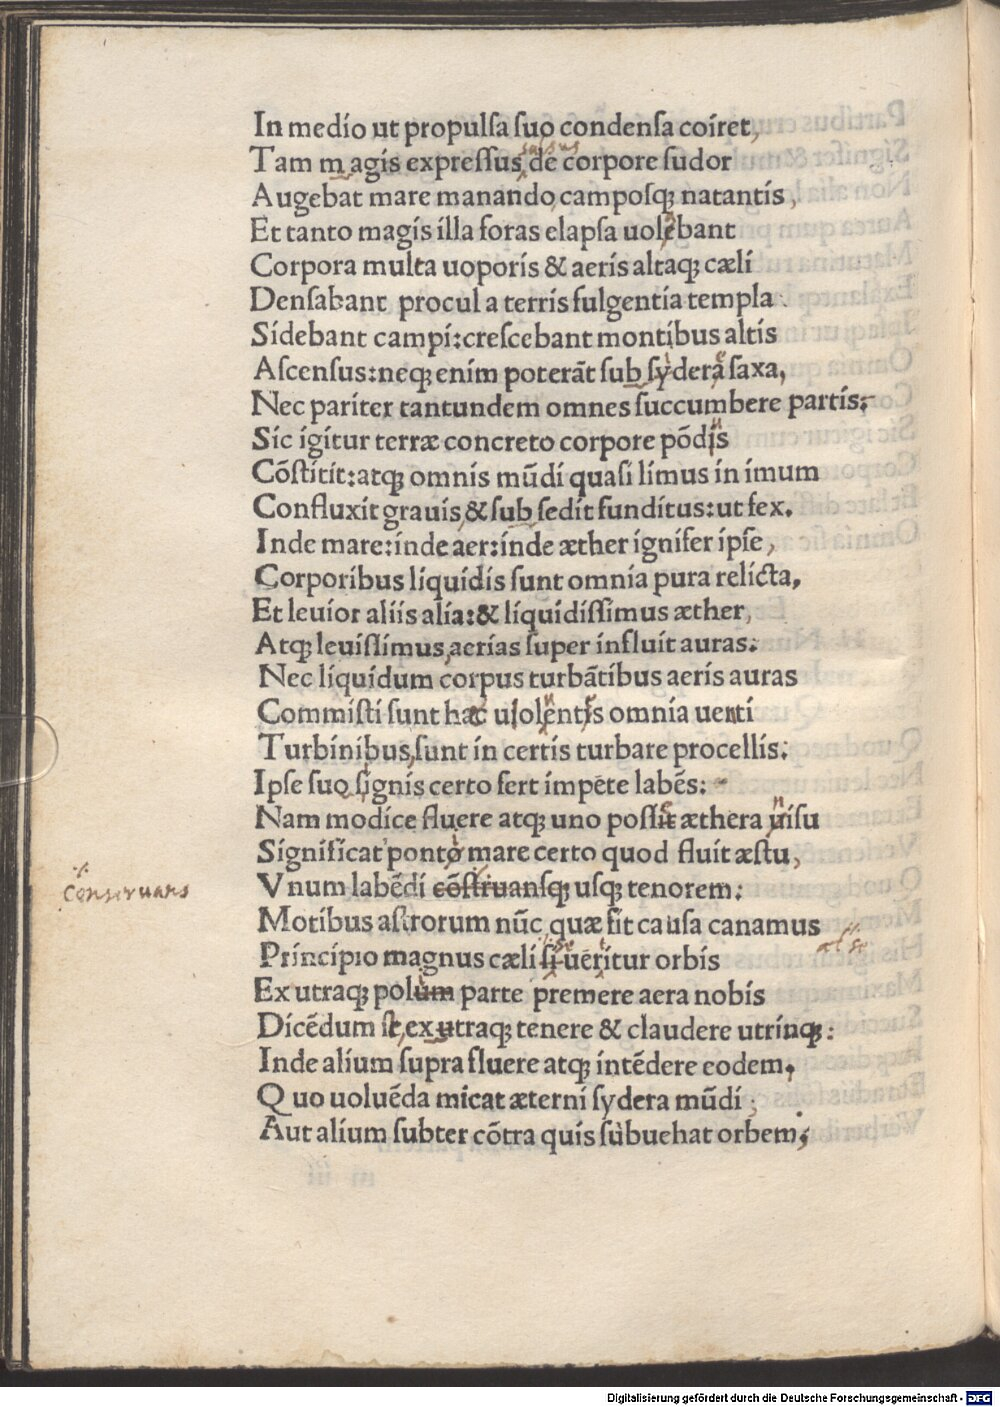 In medio ut propulſa ſuo condenſa coiret,
ſalſus
Tam magis expreſſus de corpore ſudor
Augebat mare manando, campoſqꝫ natantis,
Et tanto magis illa foras elapſa uolebant
Corpora multa uoporis & aeris altaqꝫ cæli
Denſabant procul a terris fulgentia templa
Sidebant campi: creſcebant montibus altis
Aſcenſus: neqꝫ enim poterãt ſub ſydera ſaxa,
Nec pariter tantundem omnes ſuccumbere partis:
Sic igitur terræ concreto corpore põdis
Cõſtitit: atqꝫ omnis mũdi quaſi limus in imum
Confluxit grauis, & ſub ſedit funditus: ut fex.
Inde mare: inde aer: inde æther ignifer ipſe,
Corporibus liquidis ſunt omnia pura relicta,
Et leuior aliis alia: & liquidiſſimus æther,
Atqꝫ leuiſſimus, aerias ſuper influit auras.
Nec liquidum corpus turbãtibus aeris auras
Commiſti ſunt hac uiolentis omnia uerti
Turbinibus, ſunt in certis turbare procellis:
Ipſe ſuo ſignis certo fert impete labẽs:
Nam modice fluere atqꝫ uno poſſit æthera uiſu
Significat ponto mare certo quod fluit æſtu,
Conseruans
Vnum labẽdi cõſtruanſqꝫ uſqꝫ tenorem:
Motibus aſtrorum nũc quæ ſit cauſa canamus
Principio magnus cæli ſi ueritur orbis
Ex utraqꝫ polum parte premere aera nobis
Dicẽdum ſt, ex utraqꝫ tenere & claudere utrinqꝫ:
Inde alium ſupra fluere atqꝫ intẽdere eodem,
Quo uoluẽda micat æterni ſydera mũdi;
Aut alium ſubter cõtra quis ſubuehat orbem;
Digitalisierung gefördert durch die Deutsche Forschungsgemeinschaft - DFG